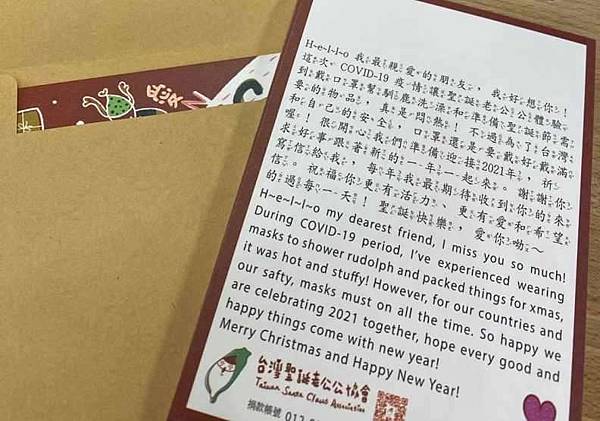 H~e~l~l~o 我最親愛的朋友，我好想你！
這次 COVID-19 疫情讓聖誕老公公體驗
到戴口罩幫馴鹿洗澡和準備聖誕節需
要的物品，真是悶熱！不過為了台灣
和自己的安全，口罩還是要戴好戴滿
喔！很開心我們準備迎接2021年，祈
求好事跟著新的一年一起來。謝謝你
寫信給我，每年我最期待收到你的來
信。祝福你更有活力、更有愛和希望
的過每一天！聖誕快樂，愛你呦～
H~e~l~l~o my dearest friend, I miss you so much!
During COVID-19 period, I've experienced wearing
masks to shower rudolph and packed things for xmas,
it was hot and stuffy! However, for our countries and
our safty, masks must on all the time. So happy we
are celebrating 2021 together, hope every good and
happy things come with new year!
Merry Christmas and Happy New Year!
台灣聖誕老公公協會
Taiwan Santa Claus Association
捐款帳號 012